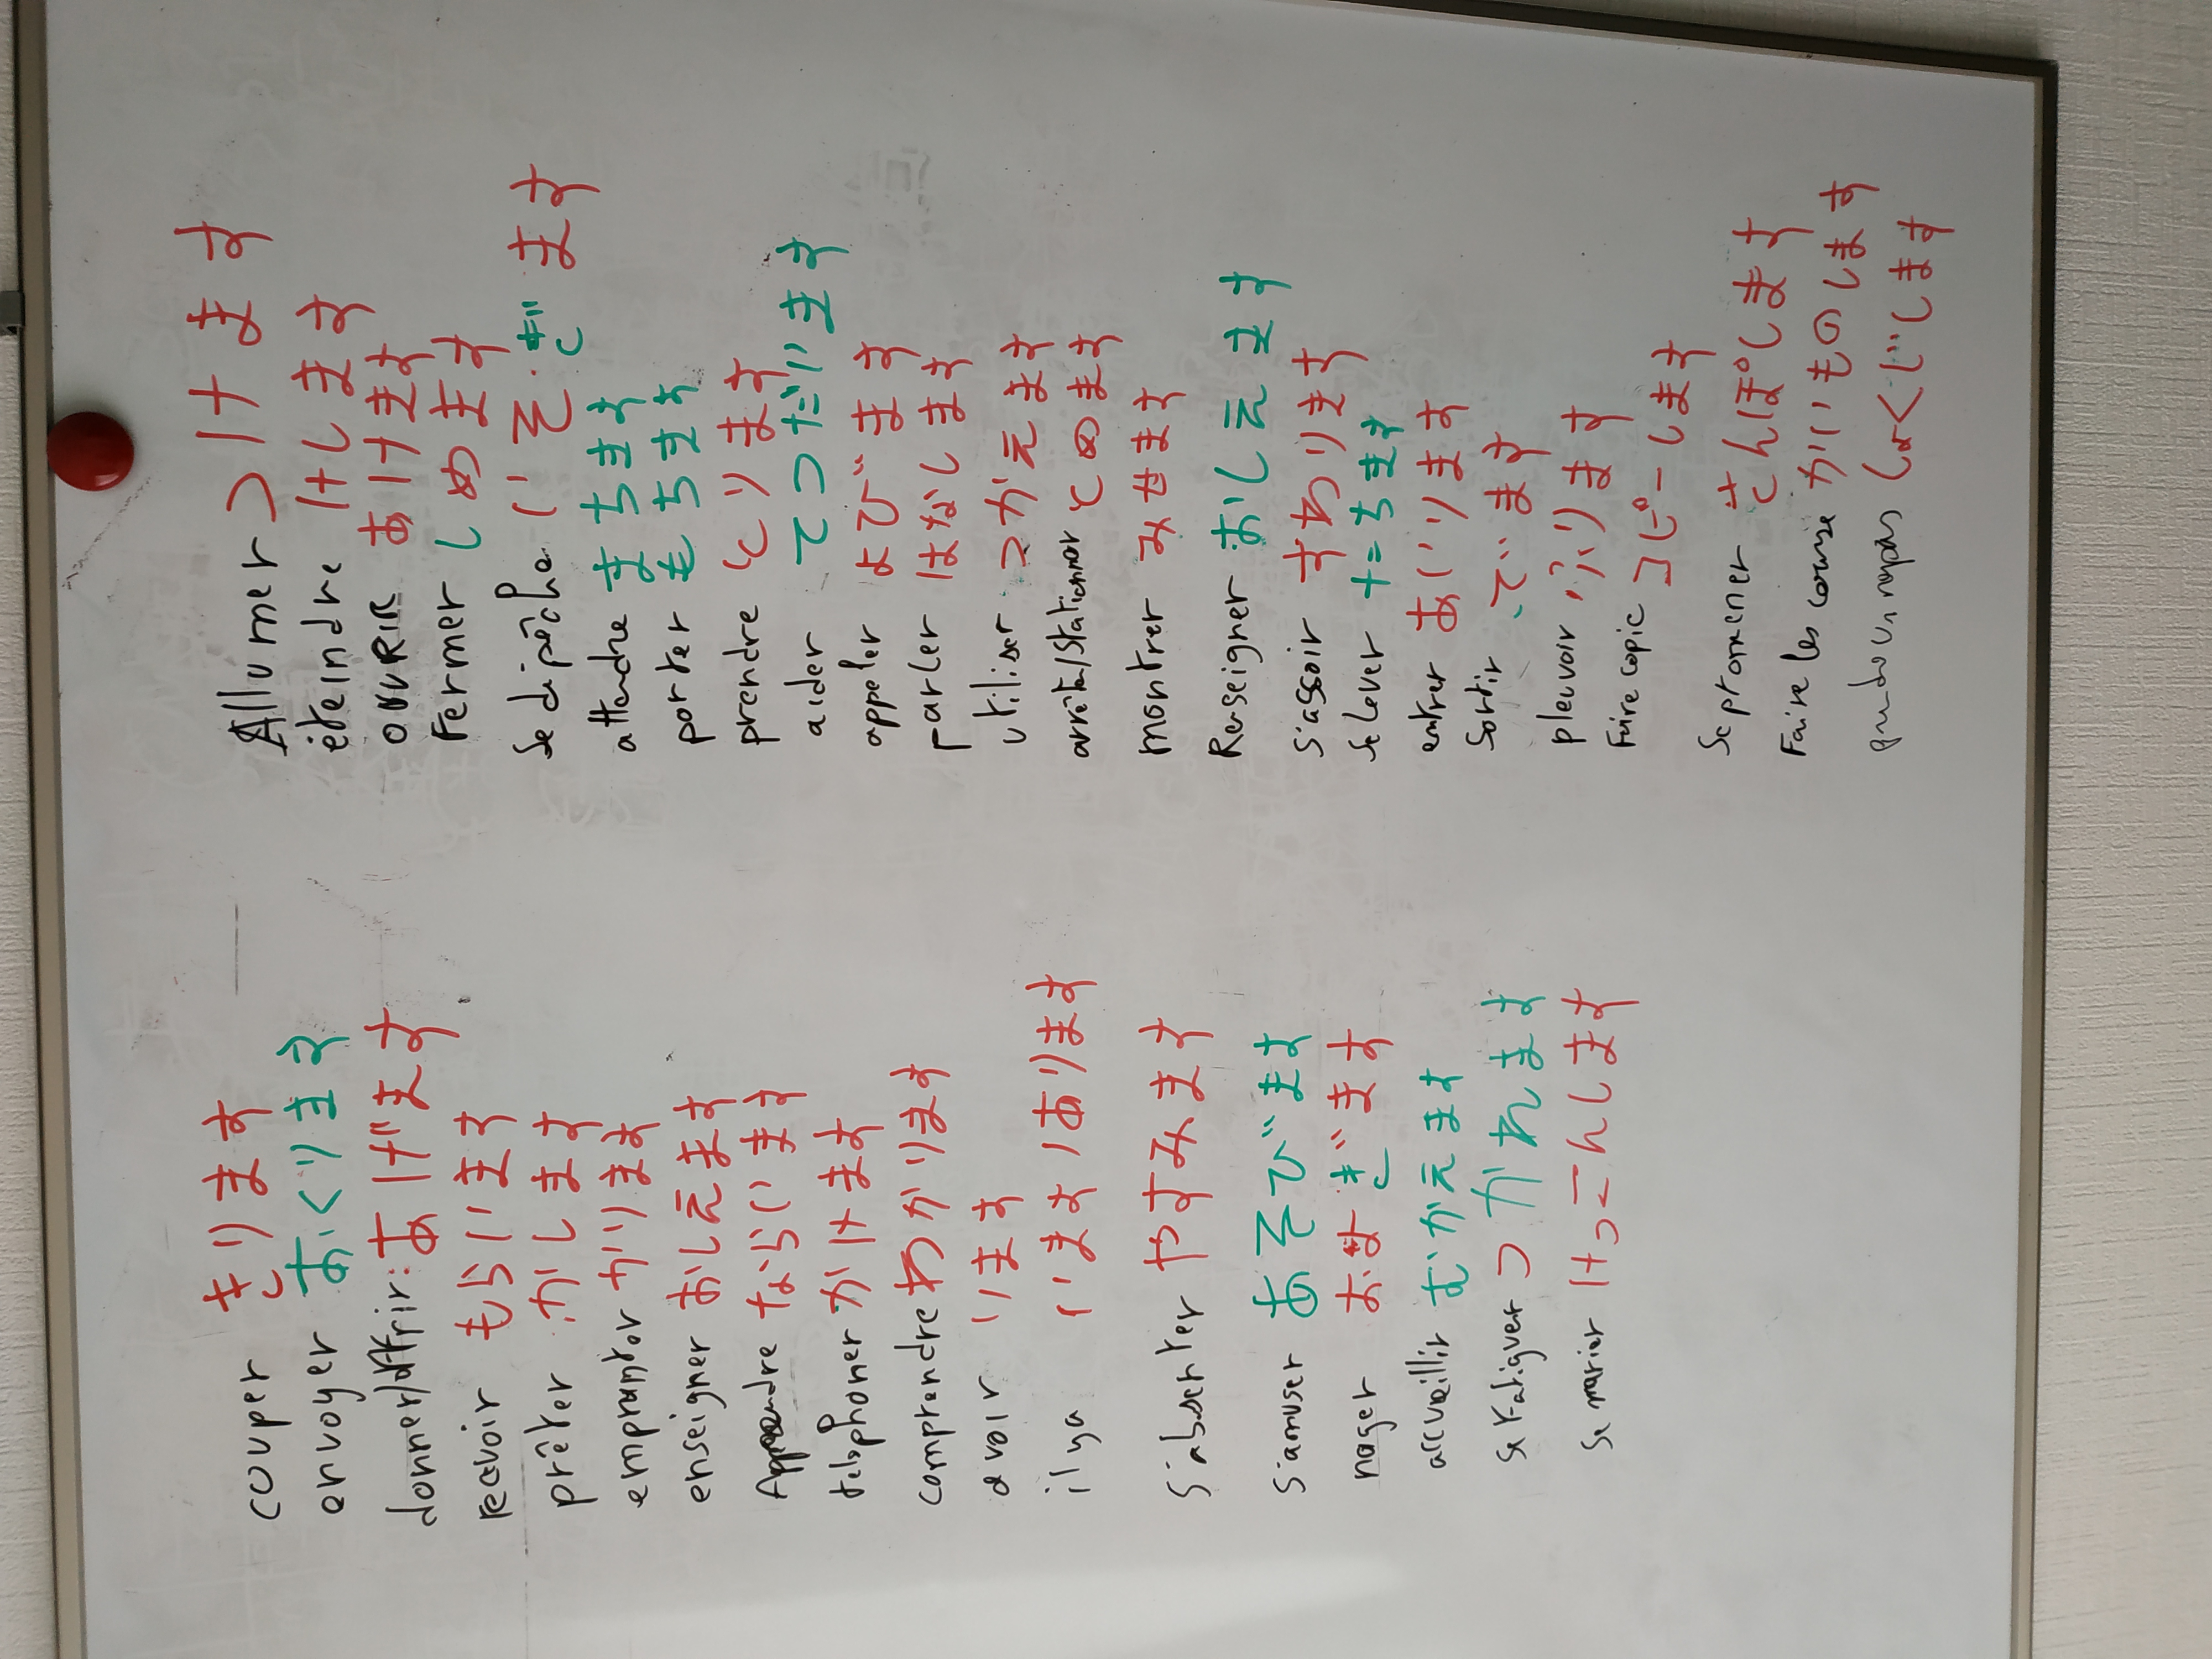 couper きります
envoyer おくります
donner/offrir: あげます
recevoir もらいます
prêter かします
emprunter かります
enseigner おしえます
Apprendre ならいます
téléphoner かけます
comprendre わかります
avoir います
il ya います / あります
S'absenter やすみます
S'amuser あそびます
nager およぎます
accueillir むかえます
se Fatiguer つかれます
se marier けっこんします
Allumer つけます
éteindre けします
OUVRIR あけます
Fermer しめます
Se dépêcher いそぎます
attendre まちます
porter もちます
prendre とります
aider てつだいます
appeler よびます
parler はなします
utiliser つかえます
arrêter/stationner とめます
montrer みせます
Renseigner おしえます
S'assoir すわります
se lever たちます
entrer はいります
Sortir でます
pleuvoir ふります
Faire copie コピーします
Se promener さんぽします
Faire les course かいものします
prendre un repas しょくじします